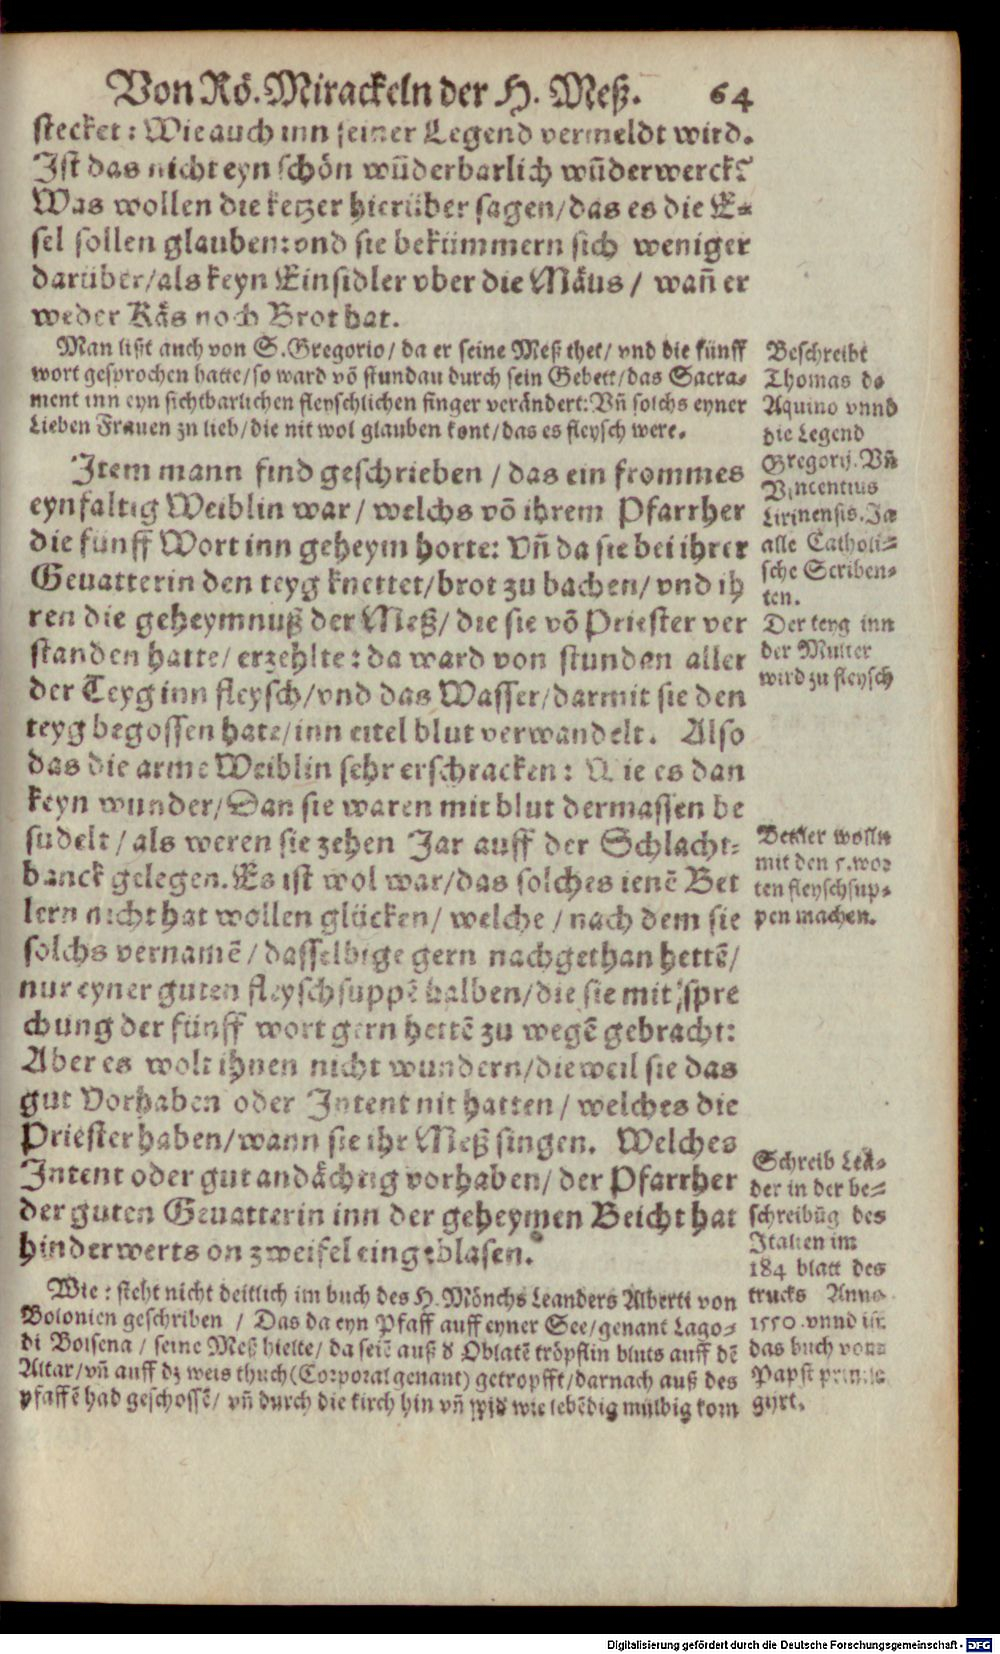 Von Rö. Mirackeln der H. Meß. 64
stecket: Wie auch inn seiner Legend vermeldt wird.
Ist das nicht eyn schön wũderbarlich wũderwerck?
Was wollen die ketzer hierüber sagen/das es die E=
sel sollen glauben: vnd sie bekümmern sich weniger
darüber/als keyn Einsidler vber die Mäus/ wañ er
weder Käs noch Brot hat.
Man lißt auch von S. Gregorio/ da er seine Meß thet/ vnd die fünff
wort gesprochen hatte/so ward võ stundan durch sein Gebett/das Sacra=
ment inn eyn sichtbarlichen fleyschlichen finger verändert: Vñ solchs eyner
Lieben Frauen zu lieb/die nit wol glauben kont/das es fleysch were.
Beschreibt
Thomas de
Aquino vnnd
die Legend
Gregorij. Vñ
Vincentius
Lirinensis. Ja
alle Catholi=
sche Scriben=
ten.
Item mann find geschrieben / das ein frommes
eynfaltig Weiblin war/ welchs võ ihrem Pfarrher
die fünff Wort inn geheym horte: Vñ da sie bei ihrer
Geuatterin den teyg knettet/brot zu bachen/ vnd ih
ren die geheymnuß der Meß/ die sie võ Priester ver
standen hatte/ erzehlte: da ward von stundan aller
der Teyg inn fleysch/vnd das Wasser/darmit sie den
teyg begossen hate/inn eitel blut verwandelt. Also
das die arme Weiblin sehr erschracken: Wie es dan
keyn wunder/Dan sie waren mit blut dermassen be
sudelt / als weren sie zehen Jar auff der Schlacht=
banck gelegen. Es ist wol war/das solches ienẽ Bet
lern nicht hat wollen glücken/ welche / nach dem sie
solchs vernamẽ/ dasselbige gern nachgethan hettẽ/
nur eyner guten fleyschsuppẽ halben/die sie mit spre
chung der fünff wort gern hettẽ zu wegẽ gebracht:
Aber es wolt ihnen nicht wundern/die weil sie das
gut Vorhaben oder Intent nit hatten / welches die
Priester haben/wann sie ihr Meß singen. Welches
Intent oder gut andächtig vorhaben/ der Pfarrher
der guten Geuatterin inn der geheymen Beicht hat
hinderwerts on zweifel eingeblasen.
Der teyg inn
der Multer
wird zu fleysch
Bettler wolln
mit den 5. wor
ten fleyschsup=
pen machen.
Wie: steht nicht deitlich im buch des H. Mönchs Leanders Alberti von
Bolonien geschriben / Das da eyn Pfaff auff eyner See/genant Lago=
di Bolsena / seine Meß hielte/ da seiẽ auß d Oblatẽ tröpflin bluts auff dẽ
Altar/vñ auff dz weis thuch (Corporal genant) getropfft/darnach auß des
pfaffẽ had geschossẽ/ vñ durch die kirch hin vñ wid wie lebẽdig mülbig kom
Schreib Leä=
der in der be=
schreibũg des
Italien im
184 blatt des
trucks Anno
1550. vnnd ist
das buch vom
Papst
girt.